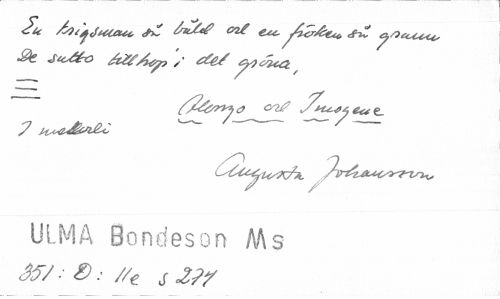 En krigsman så båld och en fröken så grann
De sutto tillhop' i det gröna,
Alonzo och Imogene
I melodi
Augusta Johansson
ULMA Bondeson Ms
351: D: 11e s 274